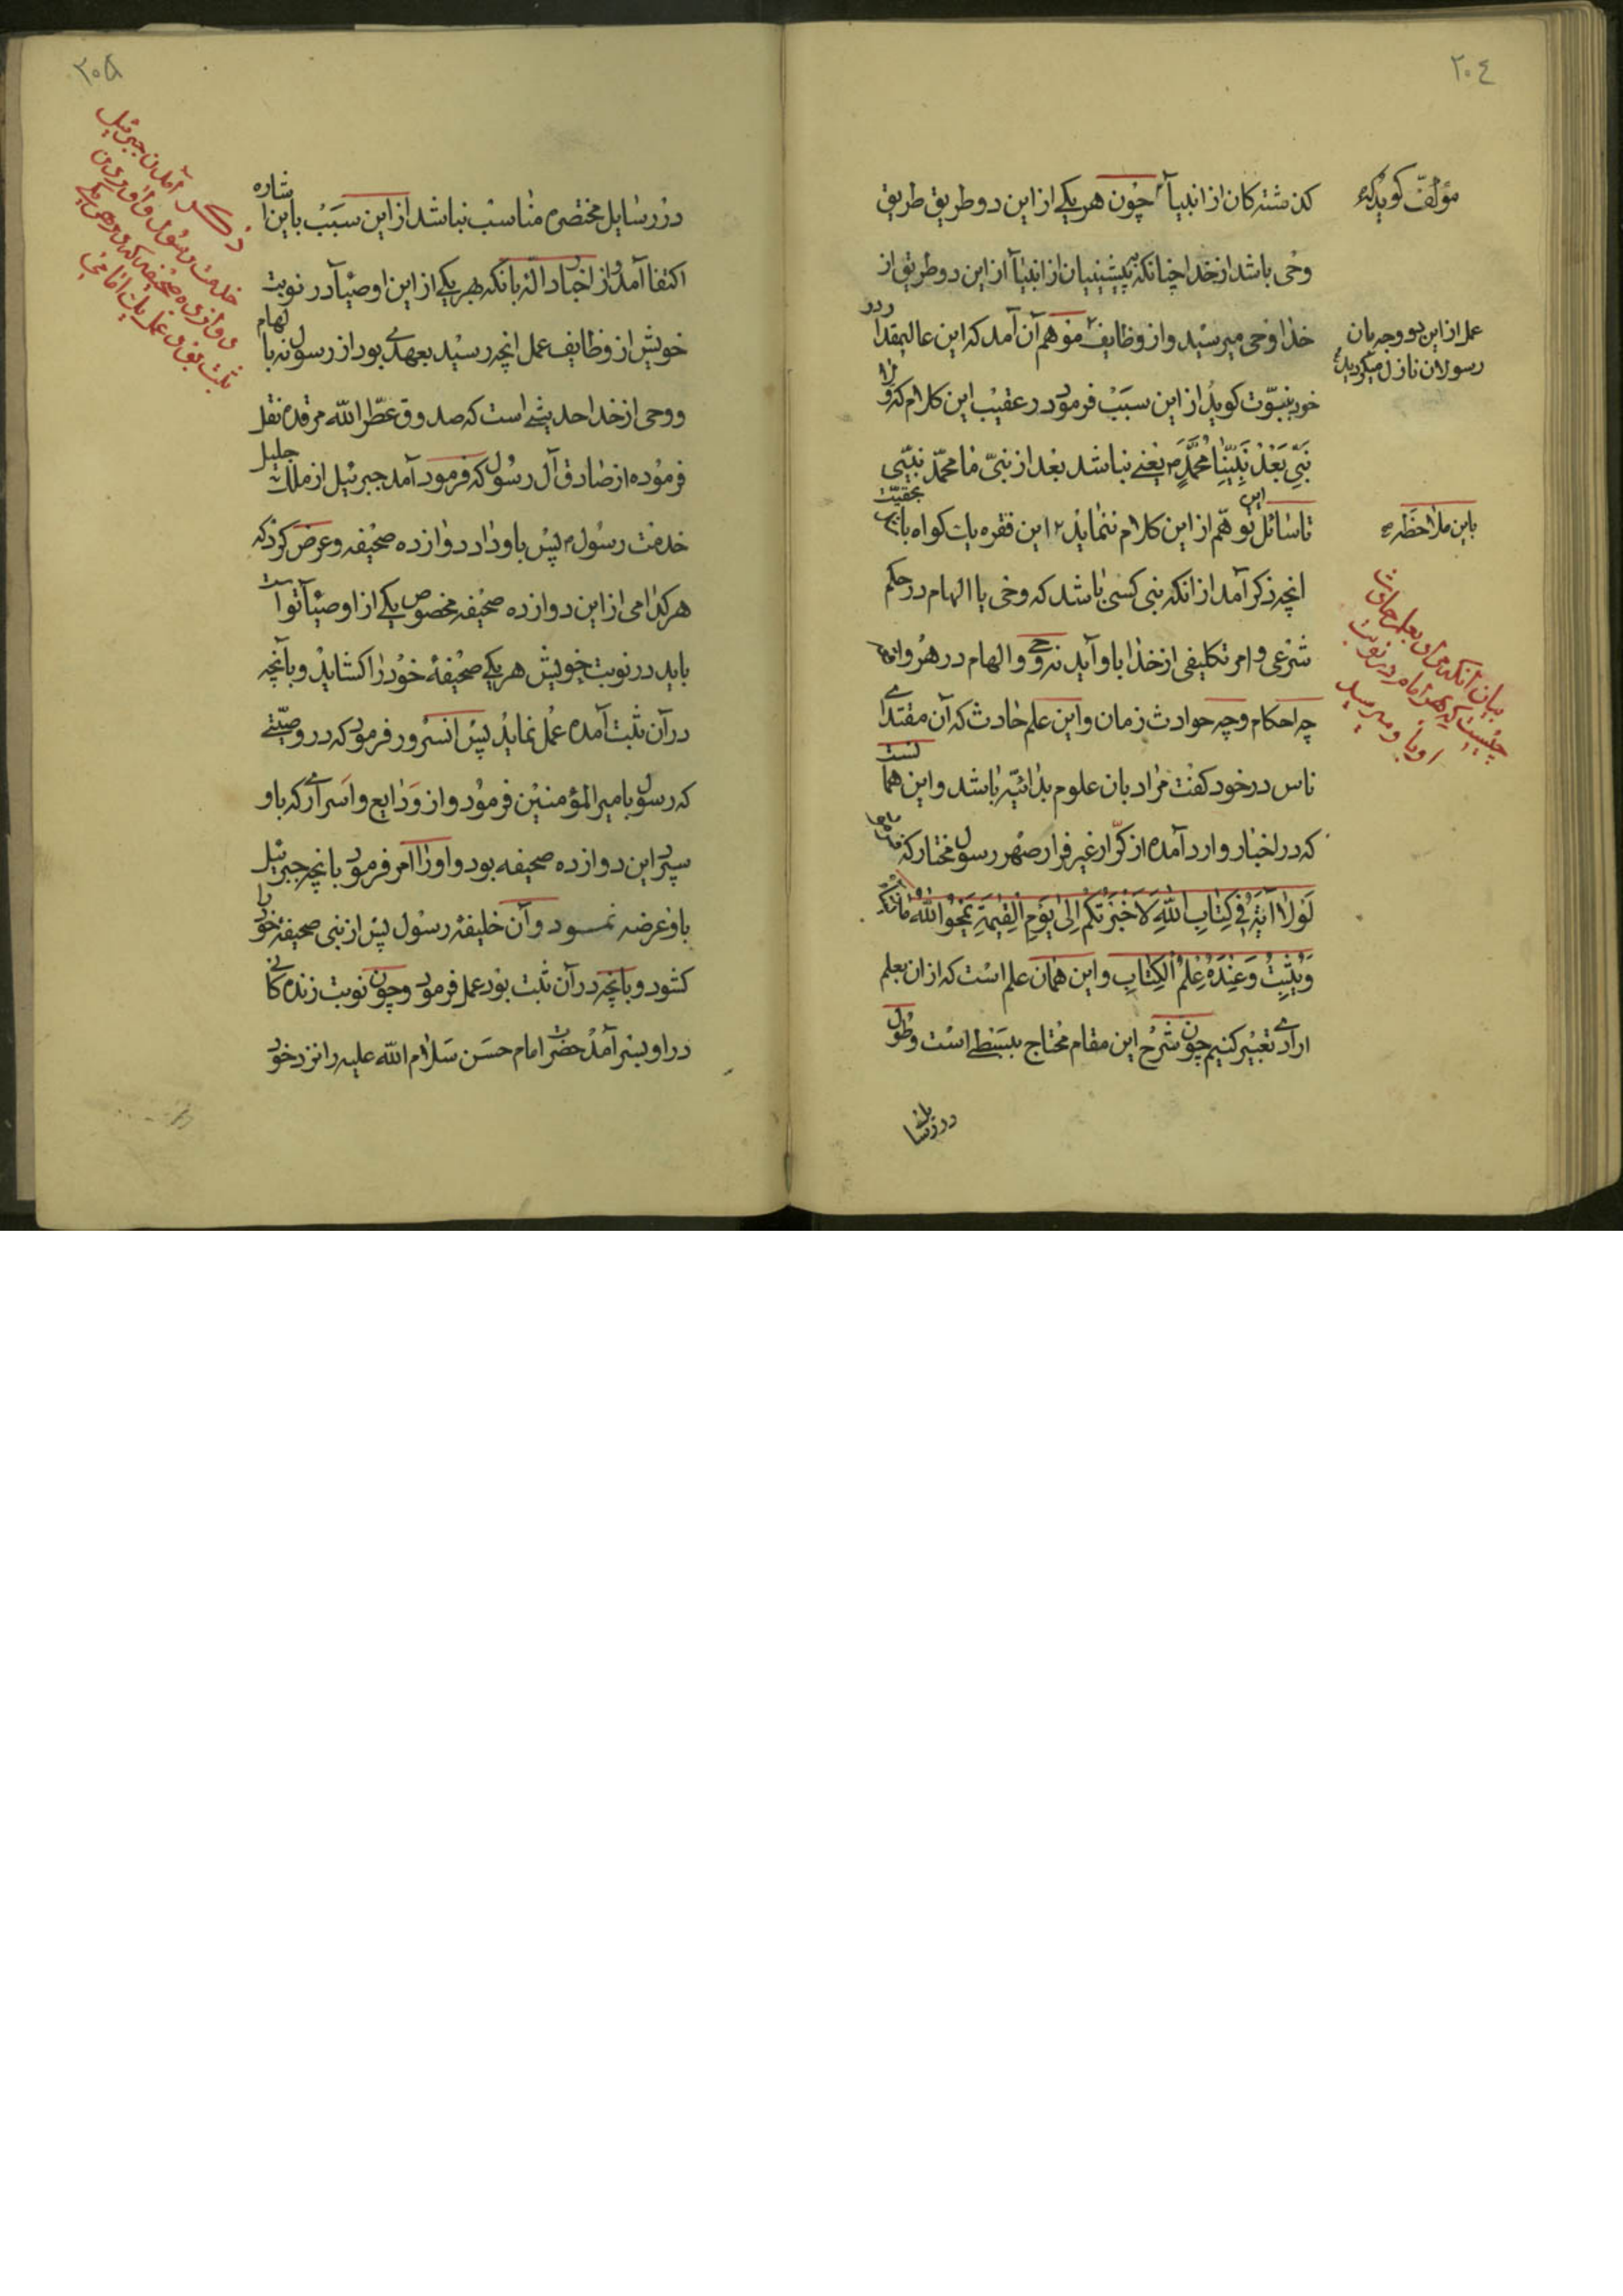 ٢٠٤
مؤلف گوید که
گذشته‌گان از انبیآء چون هر یکی از این دو طریق طریق
وحی باشد از خدا چنانکه پیشینیان از انبیآء از این دو طریق از
عمل از این دو وجه بان
رسولان نازل میگردید
خدا وحی میرسید و از وظایف موهم آن آمد که این عالیمقدار
خود بنبوّت گوید از این سبب فرمود در عقیب این کلام که و لا
نَبِیَّ بَعْدَ نَبِیِّنا مُحَمَّدٍ ص یعنے نباشد بعد از نبیّ ما محمّد نبیّی
باین ملاحظه
تا سائل این توهّم از این کلام ننماید این فقره یک گواه باشد بحقیّت
انچه ذکر آمد از انکه نبی کسی باشد که وحی یا الهام در حکم
شرعی و امر تکلیفی از خدا باو آید نه وحی و الهام در هر واقعه
بیان آنکه مراد بعلم حادث
چیست که هر امام در نوبت
او باو میرسید
چه احکام و چه حوادث زمان و این علم حادث که آن مقتدای
ناس در خود گفت مراد بان علوم بدائیّه باشد و این همانست
که در اخبار وارد آمده از کرّار غیر فرار صهر رسول مختار که
لَوْلا آیَةٌ فی کِتابِ اللّهِ لَاَخْبَرْتُکُمْ اِلی یَوْمِ الْقِیٰمَةِ یَمْحُوا اللّهُ ما یشآء
وَ یُثْبِتُ وَ عِنْدَهُ عِلْمُ الْکِتابِ و این همان علم است که از ان بعلم
ارادے تعبیر کنیم چون شرح این مقام محتاج ببسطے است و طول
در رسایل
٢٠٥
ذکر آمدن جبرئیل
خدمت رسول و آوردن
دوازده صحیفه که در هر یکے
ثبت بود عمل یک امامے
در رسایل مختصره مناسب نباشد از این سبب باین اشاره
اکتفا آمد و از اخبار دالّه بانکه بهر یکے از این اوصیآء در نوبت
خویش از وظایف عمل انچه رسید بعهدے بود از رسول نه بالهام
و وحی از خدا حدیثے است که صدوق عطّر اللّه مرقده نقل
فرموده از صادق آل رسول که فرمود آمد جبرئیل از ملک جلیل
خدمت رسول ص پس باو داد دوازده صحیفه و عرض کرد که
هر کدامی از این دوازده صحیفه مخصوص یکے از اوصیآء تو است
باید در نوبت خویش هر یکے صحیفهٔ خود را گشاید و بانچه
در آن ثبت آمده عمل نماید پس آنسرور فرمود که در وصیّتے
که رسول بامیر المؤمنین فرمود و از ودایع و اسرارے که باو
سپرد این دوازده صحیفه بود و او را امر فرمود بانچه جبرئیل
باو عرضه نمود و آن خلیفهٔ رسول پس از نبی صحیفهٔ خود را
گشود و بانچه در آن ثبت بود عمل فرمود و چون نوبت زنده‌گانے
در او بسر آمد حضرت امام حسن سلام اللّه علیه را نزد خود